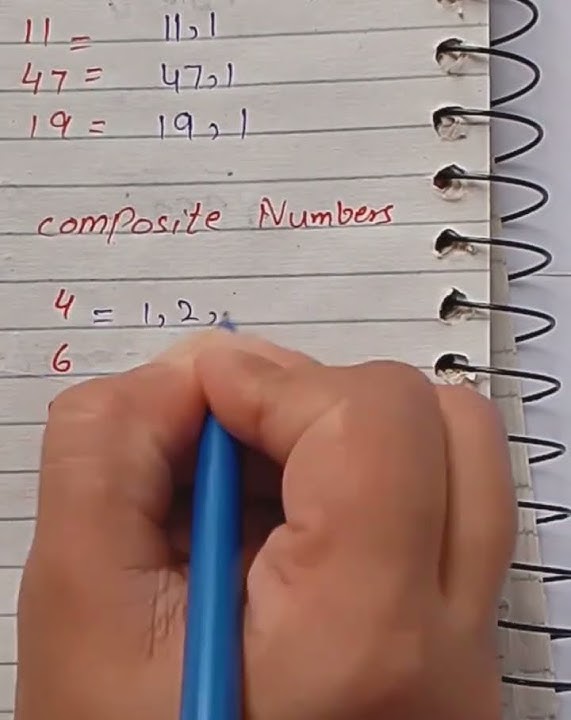 11 = 11,1
47 = 47,1
19 = 19,1
composite Numbers
4 = 1,2,
6